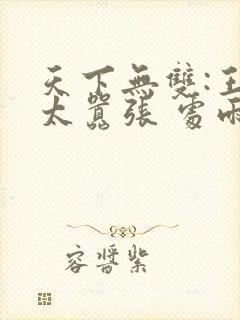 天下無雙:王
太囂張
容醬紫